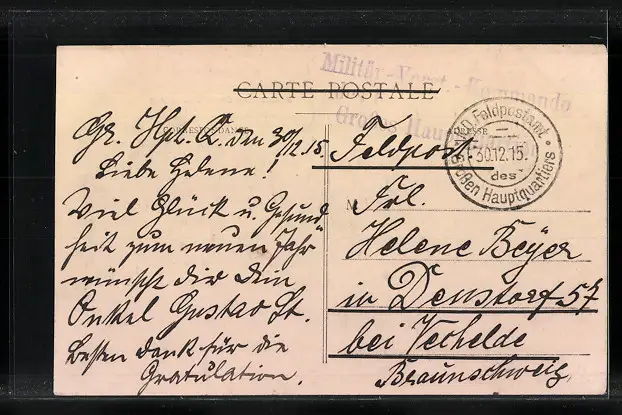 Militär-Vorst.-Kommando
Großes Hauptquartier
CARTE POSTALE
CORRESPONDANCE
ADRESSE
Gr. Hpt. Q. den 30/12.15.
Liebe Helene!
Viel Glück u. Gesund-
heit zum neuen Jahr
wünscht dir dein
Onkel Gustav St.
Besten Dank für die
Gratulation.
Feldpost
Kgl. Pr. Feldpostamt
30.12.15.
des
Großen Hauptquartiers
M
Frl.
Helene Beyer
in Denstorf 57
bei Vechelde
Braunschweig.